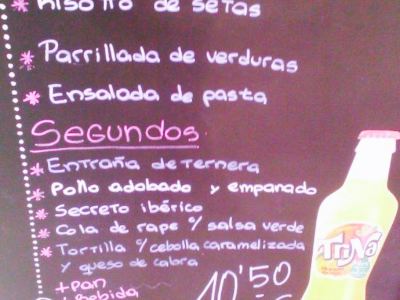 * Risotto de setas
* Parrillada de verduras
* Ensalada de pasta
Segundos
* Entraña de ternera
* Pollo adobado y empanado
* Secreto ibérico
* Cola de rape c/ salsa verde
* Tortilla c/ cebolla caramelizada
y queso de cabra
+ pan
+ bebida
10'50
Trina